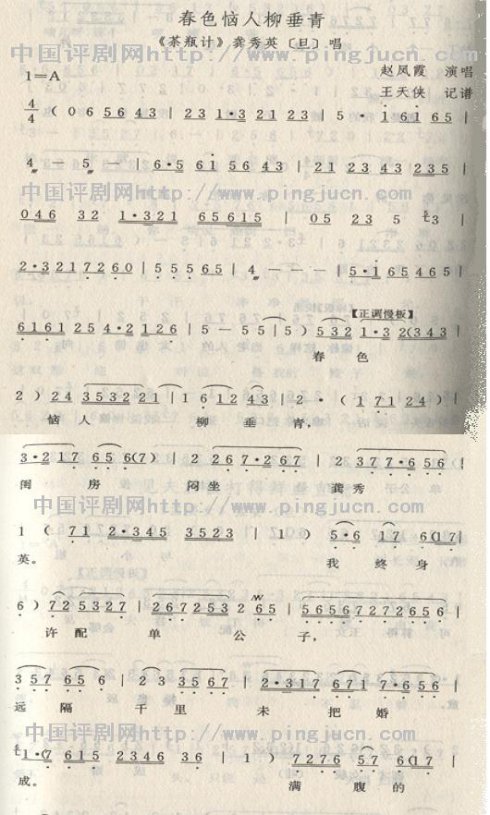 春色恼人柳垂青
《茶瓶计》龚秀英〔旦〕唱
1=A 赵凤霞 演唱
王天侠 记谱
4/4 ( 0 6 5 6 4 3 | 2 3 1·3 2 1 2 3 | 5 · 1 6 1 6 5 |
4 — 5 — | 6·5 6 1 5 6 4 3 | 2 1 2 3 4 3 2 3 5 |
中国评剧网http://www.pingjucn.com
0 4 6 3 2 1·3 2 1 6 5 6 1 5 | 0 5 2 3 5 3 |
2·3 2 1 7 2 6 0 | 5 5 5 6 5 | 4 — — — | 5·1 6 5 4 6 5 |
【正调慢板】
6 1 6 1 2 5 4·2 1 2 6 | 5 — 5 5 | 5 ) 5 3 2 1·3 2 (3 4 3
春色
2 ) 2 4 3 5 3 2 2 1 | 1 6 1 2 4 3 2 · ( 1 7 1 2 4 ) |
恼人 柳垂青,
3·2 1 7 6 5 6 (7) | 2 2 6 7·2 6 7 | 2 3 7 7·6 5 6 |
闺房 闷坐 龚秀
中国评剧网http://www.pingjucn.com
1 ( 7 1 2·3 4 5 3 5 2 3 | 1 ) 5·6 1 7 6 (1 7 |
英。 我终身
6 ) 7 2 5 3 2 7 | 2 6 7 2 5 3 2 6 5 | 5 6 5 6 7 2 7 2 6 5 6 |
许配 单公子,
3 5 7 6 5 6 5 | 2 3 3 5 6 7 | 2·3 1 7 6 7 1 7·6 5 6 |
远隔千里未把婚
中国评剧网http://www.pingjucn.com
1·(7 6 1 5 2 3 4 6 3 6 | 1 ) 1 2 1 7 6 5 6 |
成。 满腹的